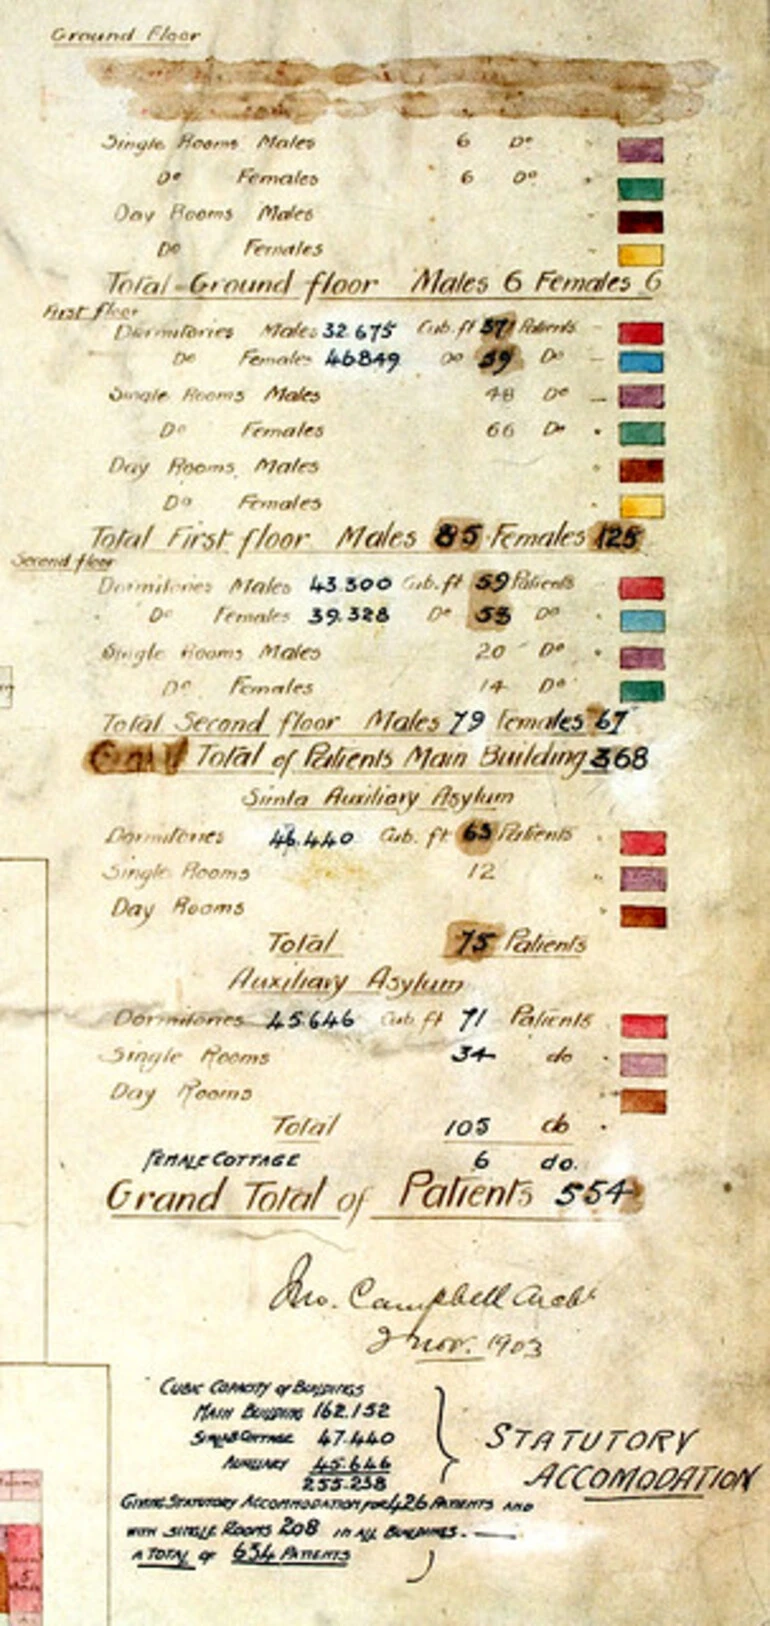 Ground Floor
Single Rooms Males 6 Do
Do Females 6 Do
Day Rooms Males
Do Females
Total Ground floor Males 6 Females 6
First floor
Dormitories Males 32.675 Cub. ft 37 Patients
Do Females 46849 Do 59 Do
Single Rooms Males 48 Do
Do Females 66 Do
Day Rooms Males
Do Females
Total First floor Males 85 Females 125
Second floor
Dormitories Males 43.300 Cub. ft 59 Patients
Do Females 39.328 Do 53 Do
Single Rooms Males 20 Do
Do Females 14 Do
Total Second floor Males 79 Females 67
Total of Patients Main Building 368
Simla Auxiliary Asylum
Dormitories 46.440 Cub. ft 63 Patients
Single Rooms 12
Day Rooms
Total 75 Patients
Auxiliary Asylum
Dormitories 45.646 Cub ft 71 Patients
Single Rooms 34 do
Day Rooms
Total 105 do
FEMALE COTTAGE 6 do.
Grand Total of Patients 554
Jno. Campbell Archt
2 Nov. 1903
CUBIC CAPACITY of BUILDINGS
MAIN BUILDING 162.152
SIMLA COTTAGE 47.440
AUXILIARY 45.646
255.238
STATUTORY
ACCOMODATION
GIVING STATUTORY ACCOMMODATION for 426 PATIENTS AND
WITH SINGLE ROOMS 208 IN ALL BUILDINGS.
A TOTAL OF 634 PATIENTS
5